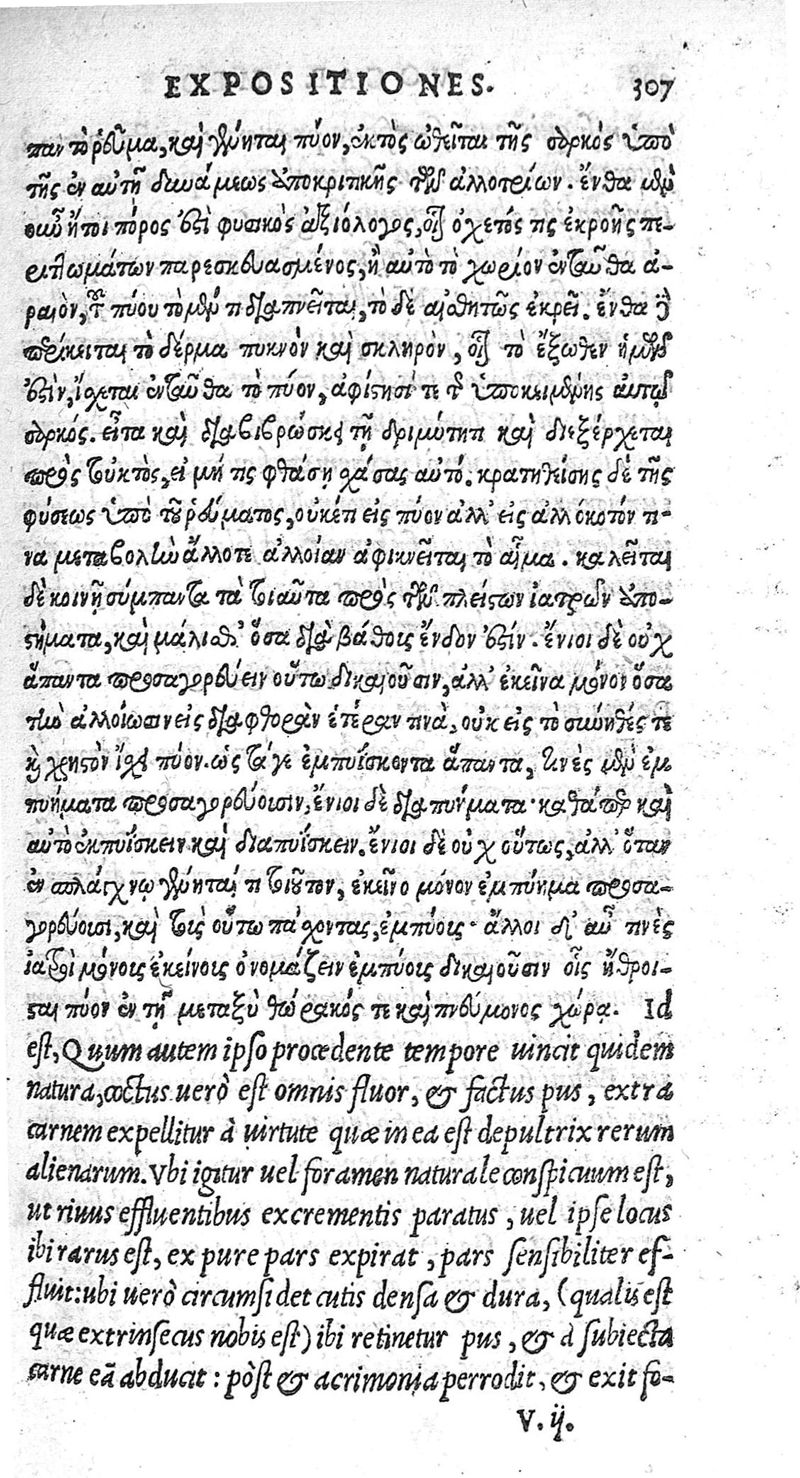 EXPOSITIONES. 307
παν τὸ ῥεῦμα, καὶ γένηται πύον, ἐκτὸς ὠθεῖται τῆς σαρκὸς ὑπὸ
τῆς ἐν αὐτῇ δυνάμεως ἀποκριτικῆς τῶν ἀλλοτρίων. ἔνθα μὲν
οὖν ἤτοι πόρος ἐστὶ φυσικὸς ἀξιόλογος, οἷον ὀχετός τις ἐκροῆς πε-
ριττωμάτων παρεσκευασμένος, ἢ αὐτὸ τὸ χωρίον ἐνταῦθα ἀ-
ραιὸν, τοῦ πύου τὸ μέν τι διαπνεῖται, τὸ δὲ αἰσθητῶς ἐκρεῖ. ἔνθα δὲ
περίκειται τὸ δέρμα πυκνὸν καὶ σκληρὸν, οἷον τὸ ἔξωθεν ἡμῶν
ἐστὶν, ἴσχεται ἐνταῦθα τὸ πύον, ἀφίστησί τε τῆς ὑποκειμένης αὐτῷ
σαρκός. εἶτα καὶ διαβιβρώσκει τῇ δριμύτητι καὶ διεξέρχεται
πρὸς τοὐκτὸς, εἰ μή τις φθάσῃ σχάσας αὐτό. κρατηθείσης δὲ τῆς
φύσεως ὑπὸ τοῦ ῥεύματος, οὐκέτι εἰς πύον ἀλλ' εἰς ἀλλόκοτόν τι-
να μεταβολὴν ἄλλοτε ἀλλοίαν ἀφικνεῖται τὸ αἷμα. καλεῖται
δὲ κοινῇ σύμπαντα τὰ τοιαῦτα πρὸς τῶν πλείστων ἰατρῶν ἀπο-
στήματα, καὶ μάλισθ' ὅσα διὰ βάθους ἔνδον ἐστίν. ἔνιοι δὲ οὐχ
ἅπαντα προσαγορεύειν οὕτω δικαιοῦσιν, ἀλλ' ἐκεῖνα μόνον ὅσα
τὴν ἀλλοίωσιν εἰς διαφθορὰν ἑτέραν τινὰ, οὐκ εἰς τὸ σύνηθές τε
καὶ χρηστὸν ἴσχει πύον. ὡς τά γε ἐμπυΐσκοντα ἅπαντα, τινὲς μὲν ἐμ
πυήματα προσαγορεύουσιν, ἔνιοι δὲ διαπυήματα· καθάπερ καὶ
αὐτὸ ἐκπυΐσκειν καὶ διαπυΐσκειν. ἔνιοι δὲ οὐχ οὕτως, ἀλλ' ὅταν
ἐν σπλάγχνῳ γένηταί τι τοιοῦτον, ἐκεῖνο μόνον ἐμπύημα προσα-
γορεύουσι, καὶ τοὺς οὕτω πάσχοντας, ἐμπύους· ἄλλοι δ' αὖ τινὲς
ἰατροὶ μόνους ἐκείνους ὀνομάζειν ἐμπύους δικαιοῦσιν οἷς ἤθροι-
σται πύον ἐν τῇ μεταξὺ θώρακός τε καὶ πνεύμονος χώρᾳ. Id
est, Quum autem ipso procedente tempore uincit quidem
natura, coctus uerò est omnis fluor, & factus pus, extra
carnem expellitur à uirtute quæ in ea est depultrix rerum
alienarum. Vbi igitur uel foramen naturale conspicuum est,
ut riuus effluentibus excrementis paratus, uel ipse locus
ibi rarus est, ex pure pars expirat, pars sensibiliter ef-
fluit: ubi uerò circumsidet cutis densa & dura, (qualis est
quæ extrinsecus nobis est) ibi retinetur pus, & à subiecta
carne eã abducit: pòst & acrimonia perrodit, & exit fo-
V. ij.